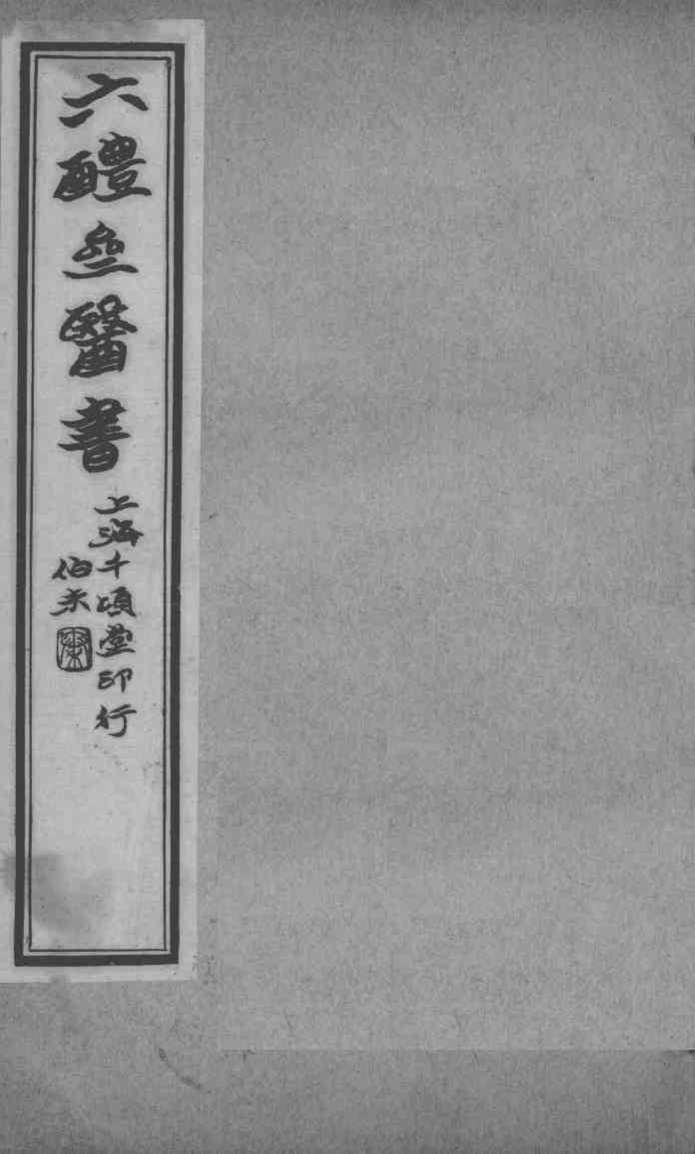 六醴齋醫書
上海千頃堂印行
伯未
秦